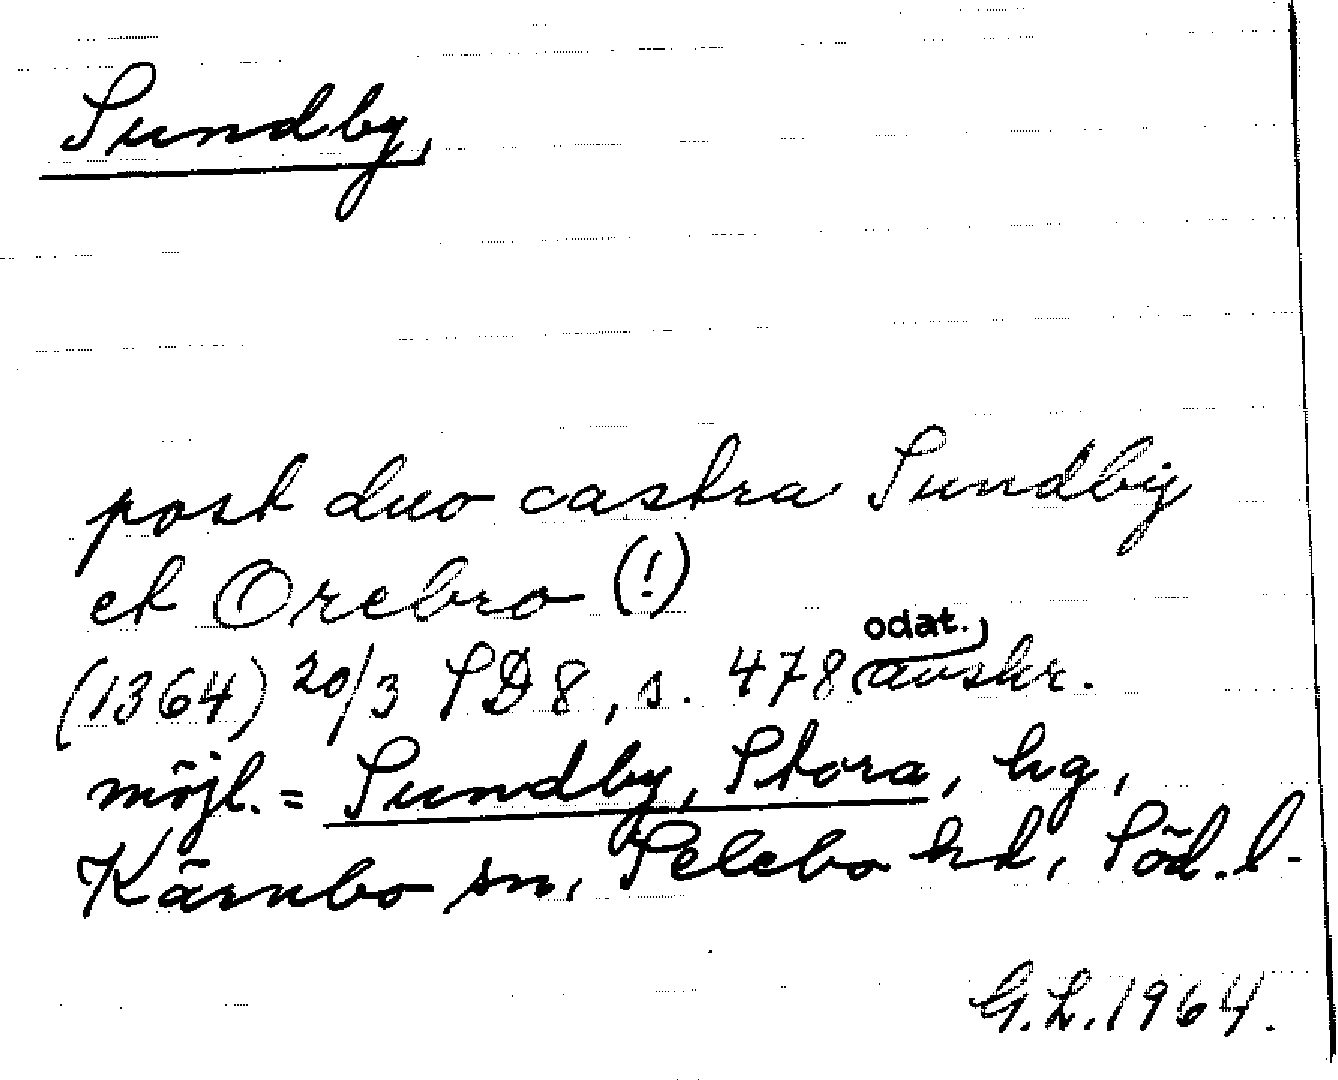 Sundby,
post duo castra Sundby
et Orebro (!)
(1364) 20/3 SD 8, s. 478 (odat. avskr.
möjl. = Sundby, Stora, hg,
Kärnbo sn, Selebo hd, Söd. l.
G.L. 1964.